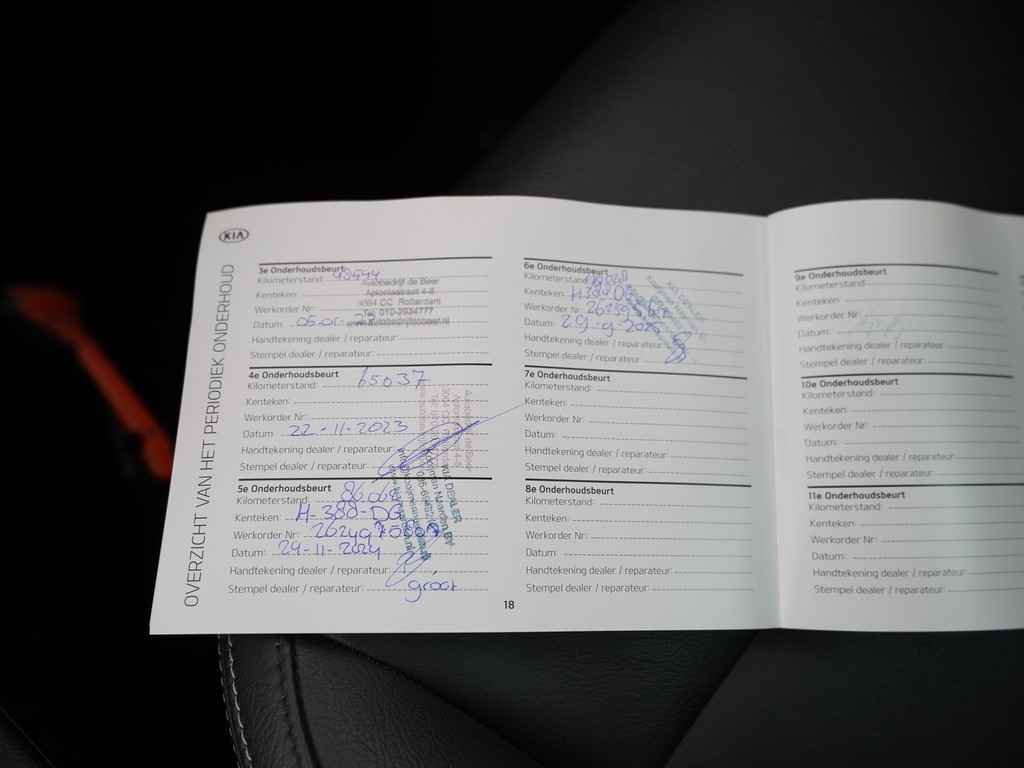 KIA
OVERZICHT VAN HET PERIODIEK ONDERHOUD
3e Onderhoudsbeurt
Kilometerstand:
Kenteken:
Werkorder Nr:
Datum: 05-01-
Handtekening dealer / reparateur:
Stempel dealer / reparateur:
Autobedrijf de Beier
Rotterdam
4e Onderhoudsbeurt
Kilometerstand: 65037
Kenteken:
Werkorder Nr:
Datum: 22-11-2023
Handtekening dealer / reparateur:
Stempel dealer / reparateur:
5e Onderhoudsbeurt
Kilometerstand:
Kenteken: H-380-DG
Werkorder Nr:
Datum: 29-11-2024
Handtekening dealer / reparateur:
Stempel dealer / reparateur: groot
KIA DEALER
6e Onderhoudsbeurt
Kilometerstand:
Kenteken:
Werkorder Nr:
Datum: 29-9-2025
Handtekening dealer / reparateur:
Stempel dealer / reparateur:
KIA DEALER
7e Onderhoudsbeurt
Kilometerstand:
Kenteken:
Werkorder Nr:
Datum:
Handtekening dealer / reparateur:
Stempel dealer / reparateur:
8e Onderhoudsbeurt
Kilometerstand:
Kenteken:
Werkorder Nr:
Datum:
Handtekening dealer / reparateur:
Stempel dealer / reparateur:
18
9e Onderhoudsbeurt
Kilometerstand:
Kenteken:
Werkorder Nr:
Datum:
Handtekening dealer / reparateur
Stempel dealer / reparateur:
10e Onderhoudsbeurt
Kilometerstand:
Kenteken:
Werkorder Nr:
Datum:
Handtekening dealer / reparateur:
Stempel dealer / reparateur:
11e Onderhoudsbeurt
Kilometerstand:
Kenteken:
Werkorder Nr:
Datum:
Handtekening dealer / reparateur:
Stempel dealer / reparateur: